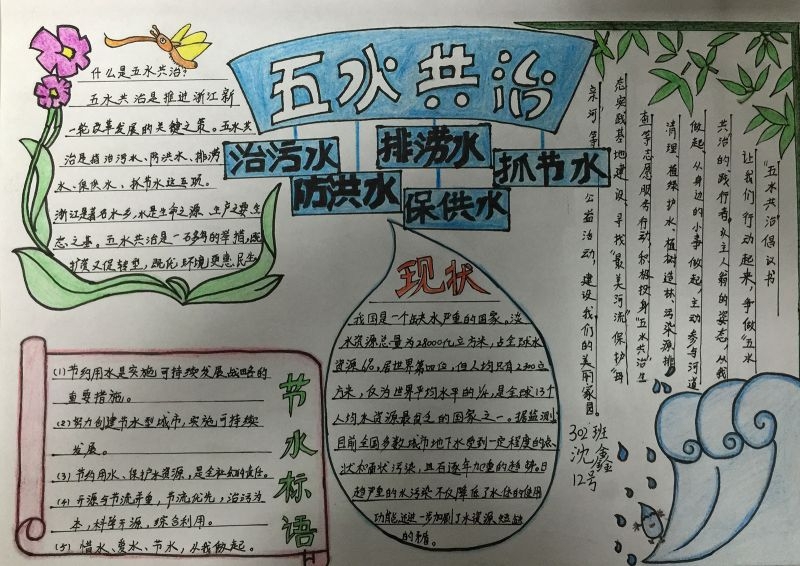 五水共治
治污水
防洪水
排涝水
保供水
抓节水
什么是五水共治?
五水共治是推进浙江新
一轮改革发展的关键之策。五水共
治是指治污水、防洪水、排涝
水、保供水、抓节水这五项。
浙江是著名水乡,水是生命之源、生产之要、生
态之基。五水共治是一石多鸟的举措,既
扩投资又促转型,既优环境更惠民生
现状
我国是一个缺水严重的国家。淡
水资源总量为28000亿立方米,占全球水
资源6%,居世界第四位,但人均只有2300立
方米,仅为世界平均水平的1/4,是全球13个
人均水资源最贫乏的国家之一。据监测
目前全国多数城市地下水受到一定程度的点
状和面状污染,且有逐年加重的趋势。日
趋严重的水污染不仅降低了水体的使用
功能,还进一步加剧了水资源短缺
的矛盾。
节水标语
(1)节约用水是实施可持续发展战略的
重要措施。
(2)努力创建节水型城市,实施可持续
发展。
(3)节约用水、保护水资源,是全社会的责任。
(4)开源与节流并重,节流优先,治污为
本,科学开源,综合利用。
(5)惜水、爱水、节水,从我做起。
“五水共治”倡议书
让我们行动起来,争做“五水
共治”的践行者。以主人翁的姿态,从我
做起、从身边的小事做起,主动参与河道
清理、植绿护水、植树造林、污染源排
查等志愿服务行动,积极投身“五水共治”生
态实践基地建设、寻找“最美河流”保护“母
亲河”等公益活动,建设我们的美丽家园。
302班
沈鑫
12号